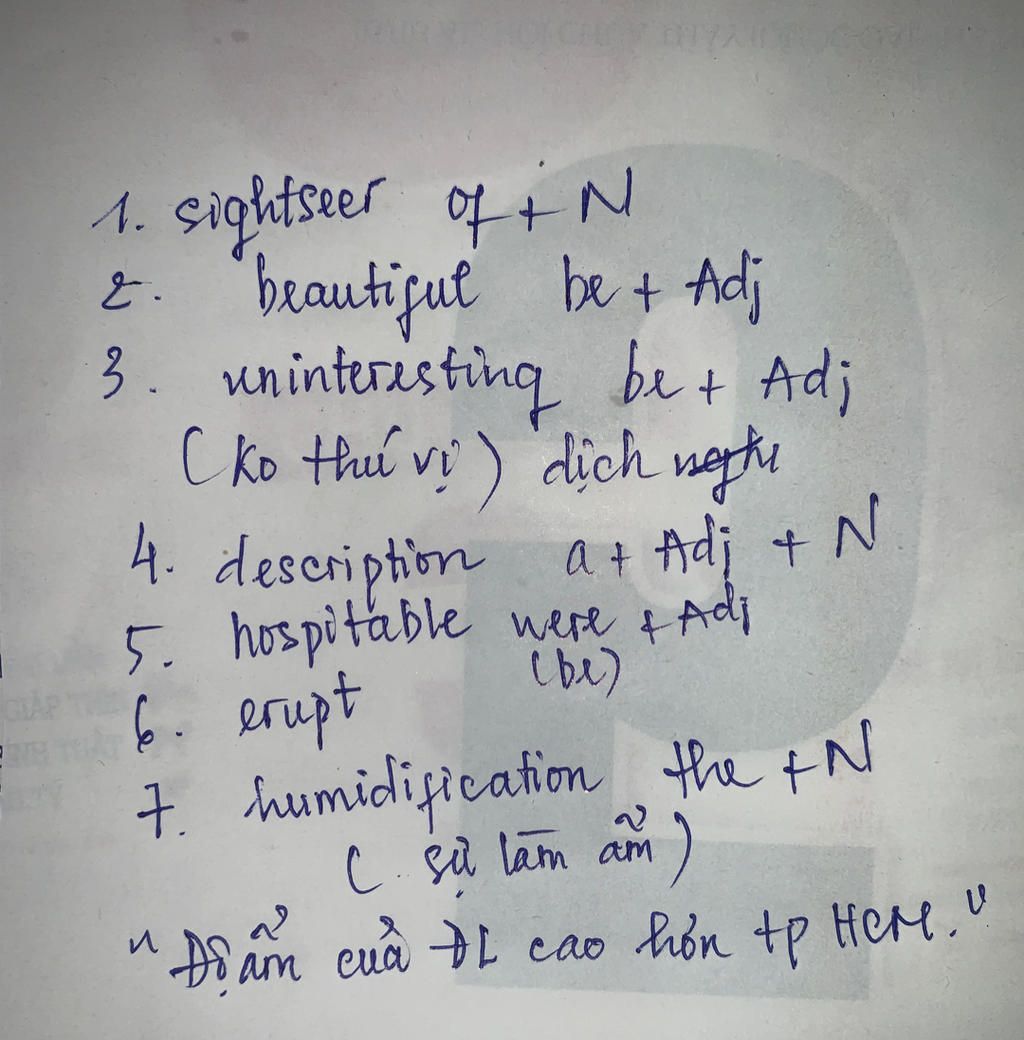 1. sightseer of + N
2. beautiful be + Adj
3. uninteresting be + Adj
(ko thú vị) dịch
4. description a + Adj + N
5. hospitable were + Adj
(be)
6. erupt
7. humidification the + N
( sự làm ẩm )
"Độ ẩm của ĐL cao hơn tp HCM."